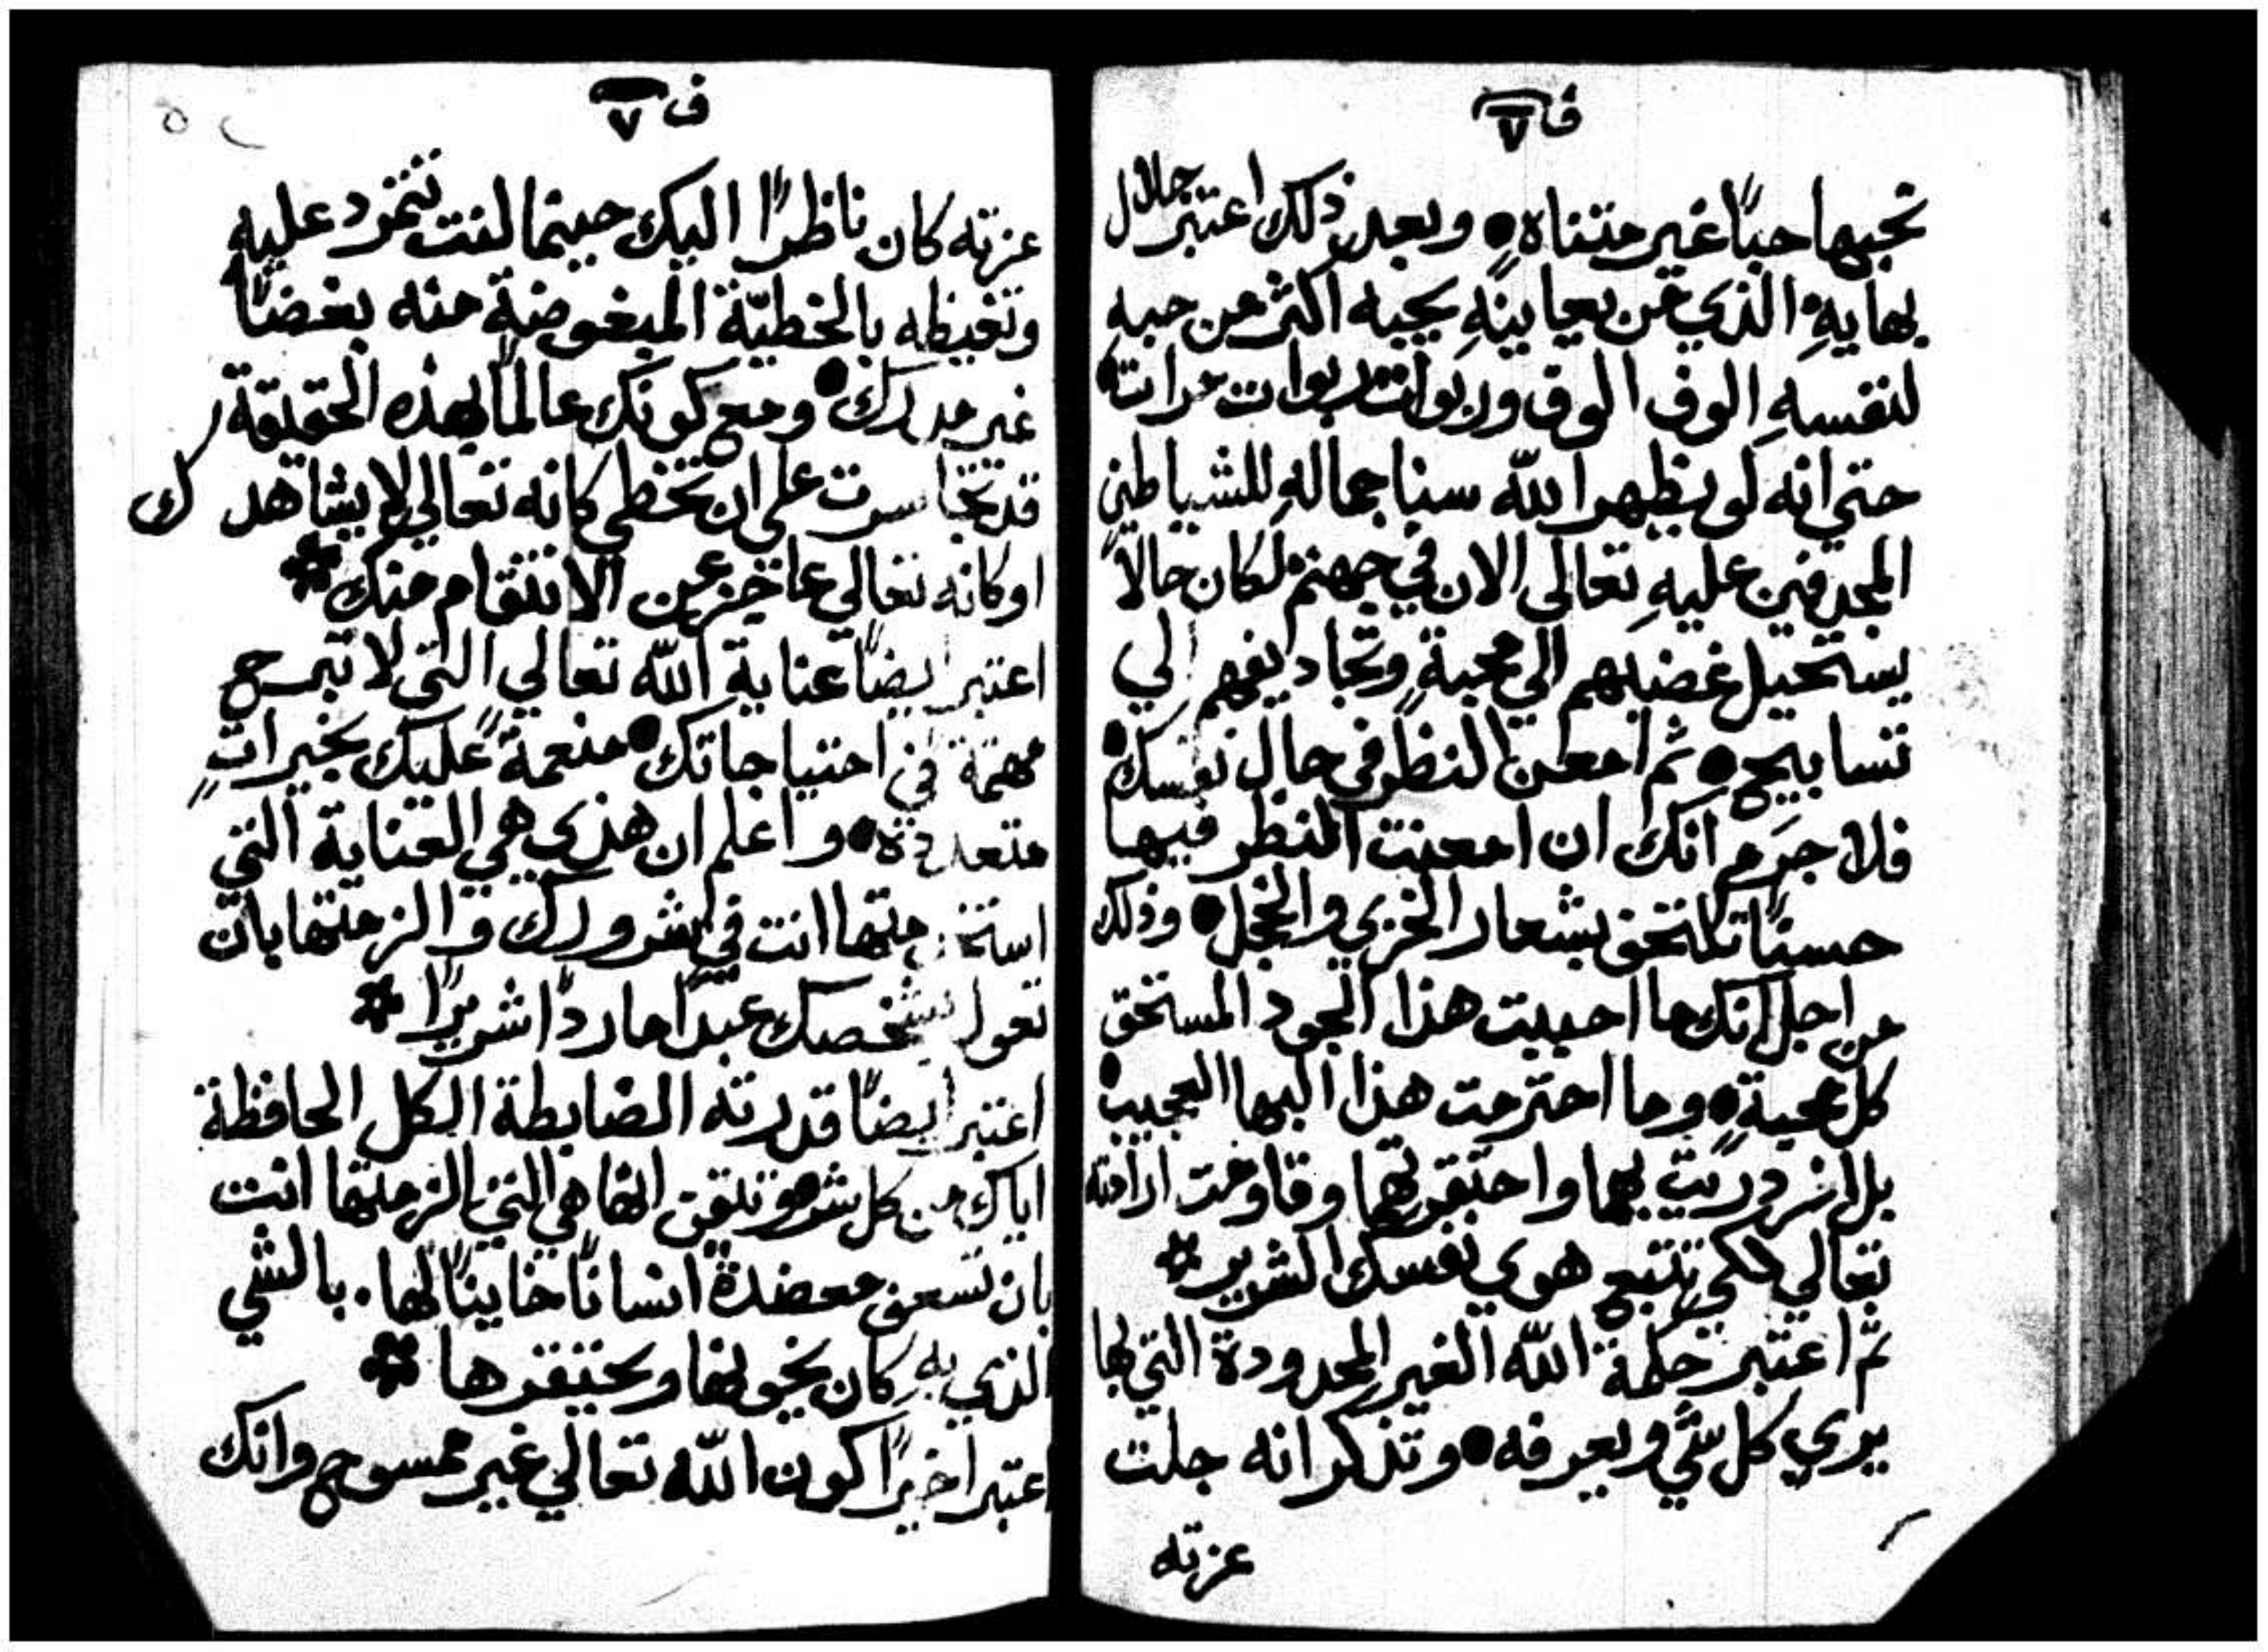 ف ٧
تحبها حبًا غير متناهٍ • وبعد ذلك اعتبر جلال
بهايهِ الذي من يعاينهِ يحبه اكثر من حبهِ
لنفسهِ الوف الوف وربوات ربوات مرات •
حتي انه لو يظهر الله سنا جمالهِ للشياطين
المجدفين عليهِ تعالي الان في جهنم لكان حالاً
يستحيل غضبهم الي محبةٍ وتجاديفهم الي
تسابيح • ثم امعن النظر في حال نفسك •
فلا جرم انك ان امعنت النظر فيها
حسنًا تلتحف بشعار الخزي والخجل • وذلك
من اجل انك ما احببت هذا الجود المستحق
كل محبةٍ • وما احترمت هذا البها العجيب •
بل ازدريت بهما واحتقرتهما وقاومت ارادته
تعالي لكي تتبع هوي نفسك الشرير *
ثم اعتبر حكمة الله الغير المحدودة التي بها
يري كل شي ويعرفه • وتذكر انه جلت
عزته
ف ٧
٥٢
عزته كان ناظرًا اليك حينما كنت تتمرد عليهِ
وتغيظه بالخطيّة المبغوضةِ منه بغضًا
غير مدرك • ومع كونك عالمًا بهذه الحقيقة
قد تجاسرت علي ان تخطي كانه تعالي لا يشاهدك
او كانه تعالي عاجز عن الانتقام منك *
اعتبر ايضًا عناية الله تعالي التي لا تبرح
مهتمة في احتياجاتك • منعمةً عليك بخيراتٍ
متعددة • واعلم ان هذي هي العناية التي
استخدمتها انت في شرورك والزمتها بان
تعول بشخصك عبدًا ماردًا شريرًا *
اعتبر ايضًا قدرته الضابطة الكل الحافظة
اياك من كل شر وتيقن انها هي التي الزمتها انت
بان تسعف معضدةً انسانًا خاينًا لها . بالشي
الذي بهِ كان يخونها ويحتقرها *
اعتبر اخيرًا كون الله تعالي غير ممسوح وانك